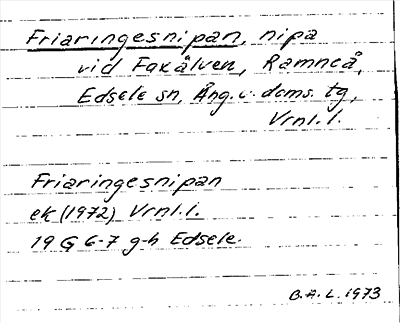 Friaringesnipan, nipa
vid Faxälven, Ramneå,
Edsele sn, Ång. v. doms. tg,
Vrnl.l.
Friaringesnipan
ek (1972) Vrnl.l.
19 G 6-7 g-h Edsele.
B.A.L. 1973